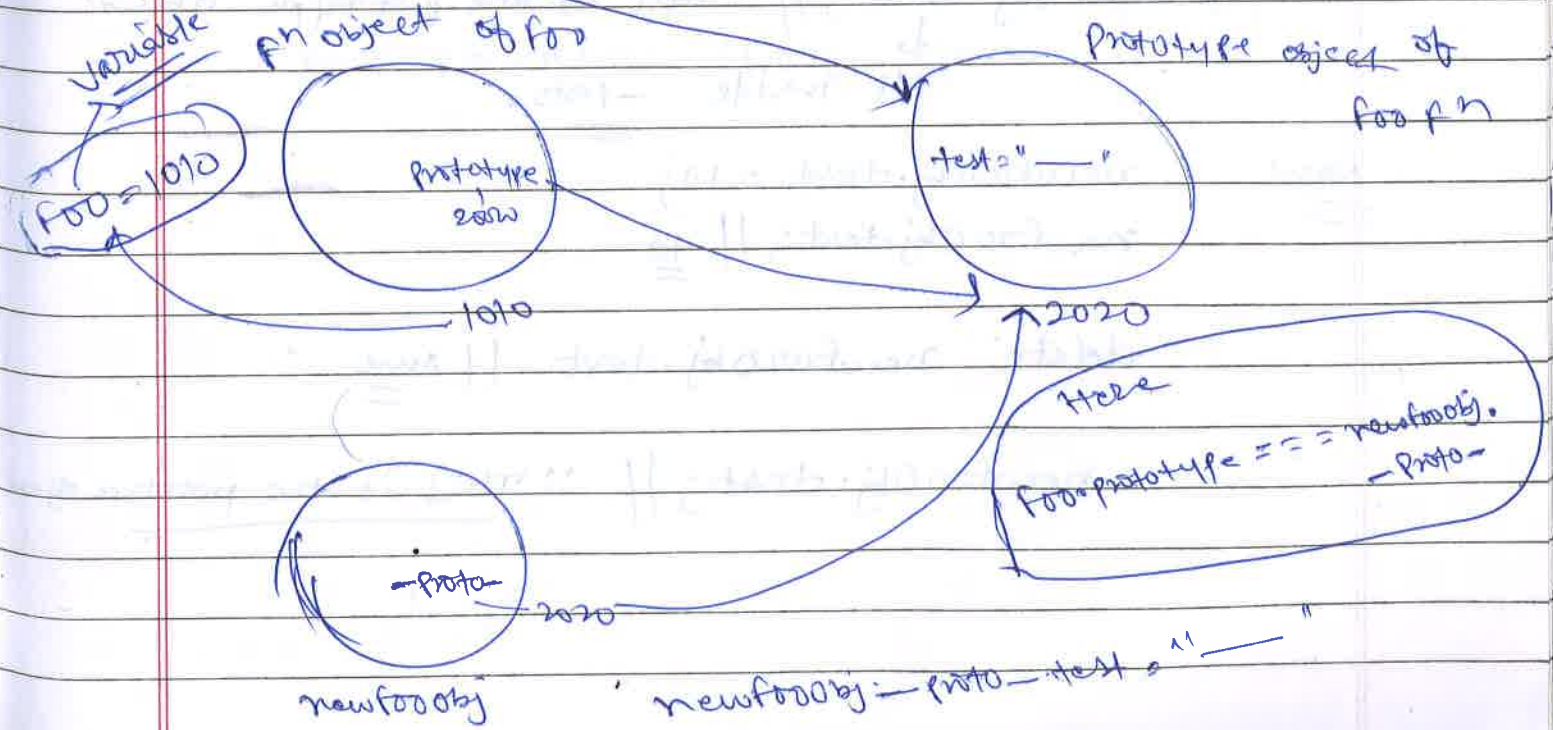 variable
fn object of foo
Prototype object of
foo fn
foo = 1010
Prototype
test = "——"
1010
2020
Here
foo.prototype === newfooobj.
-Proto-
-Proto-
2020
newfooobj
newfooobj.-proto-.test = "——"